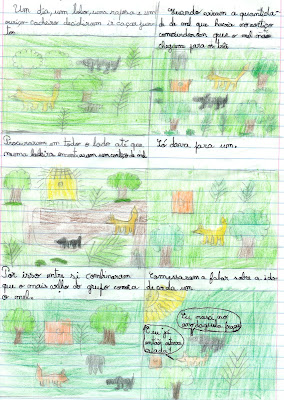 Um dia, um lobo, uma raposa e um
ouriço-cacheiro decidiram ir caçar jun-
tos.
Quando viram a quantida-
de de mel que havia no cortiço
compreenderam que o mel não
chegava para os três
Procuraram em todo o lado até que
numa ladeira encontraram um cortiço de mel.
Só dava para um.
Por isso entre si combinaram
que o mais velho do grupo comia
o mel.
Começaram a falar sobre a ida-
de de cada um.
Eu nasci no
ano daquela
E eu já
então
criada!